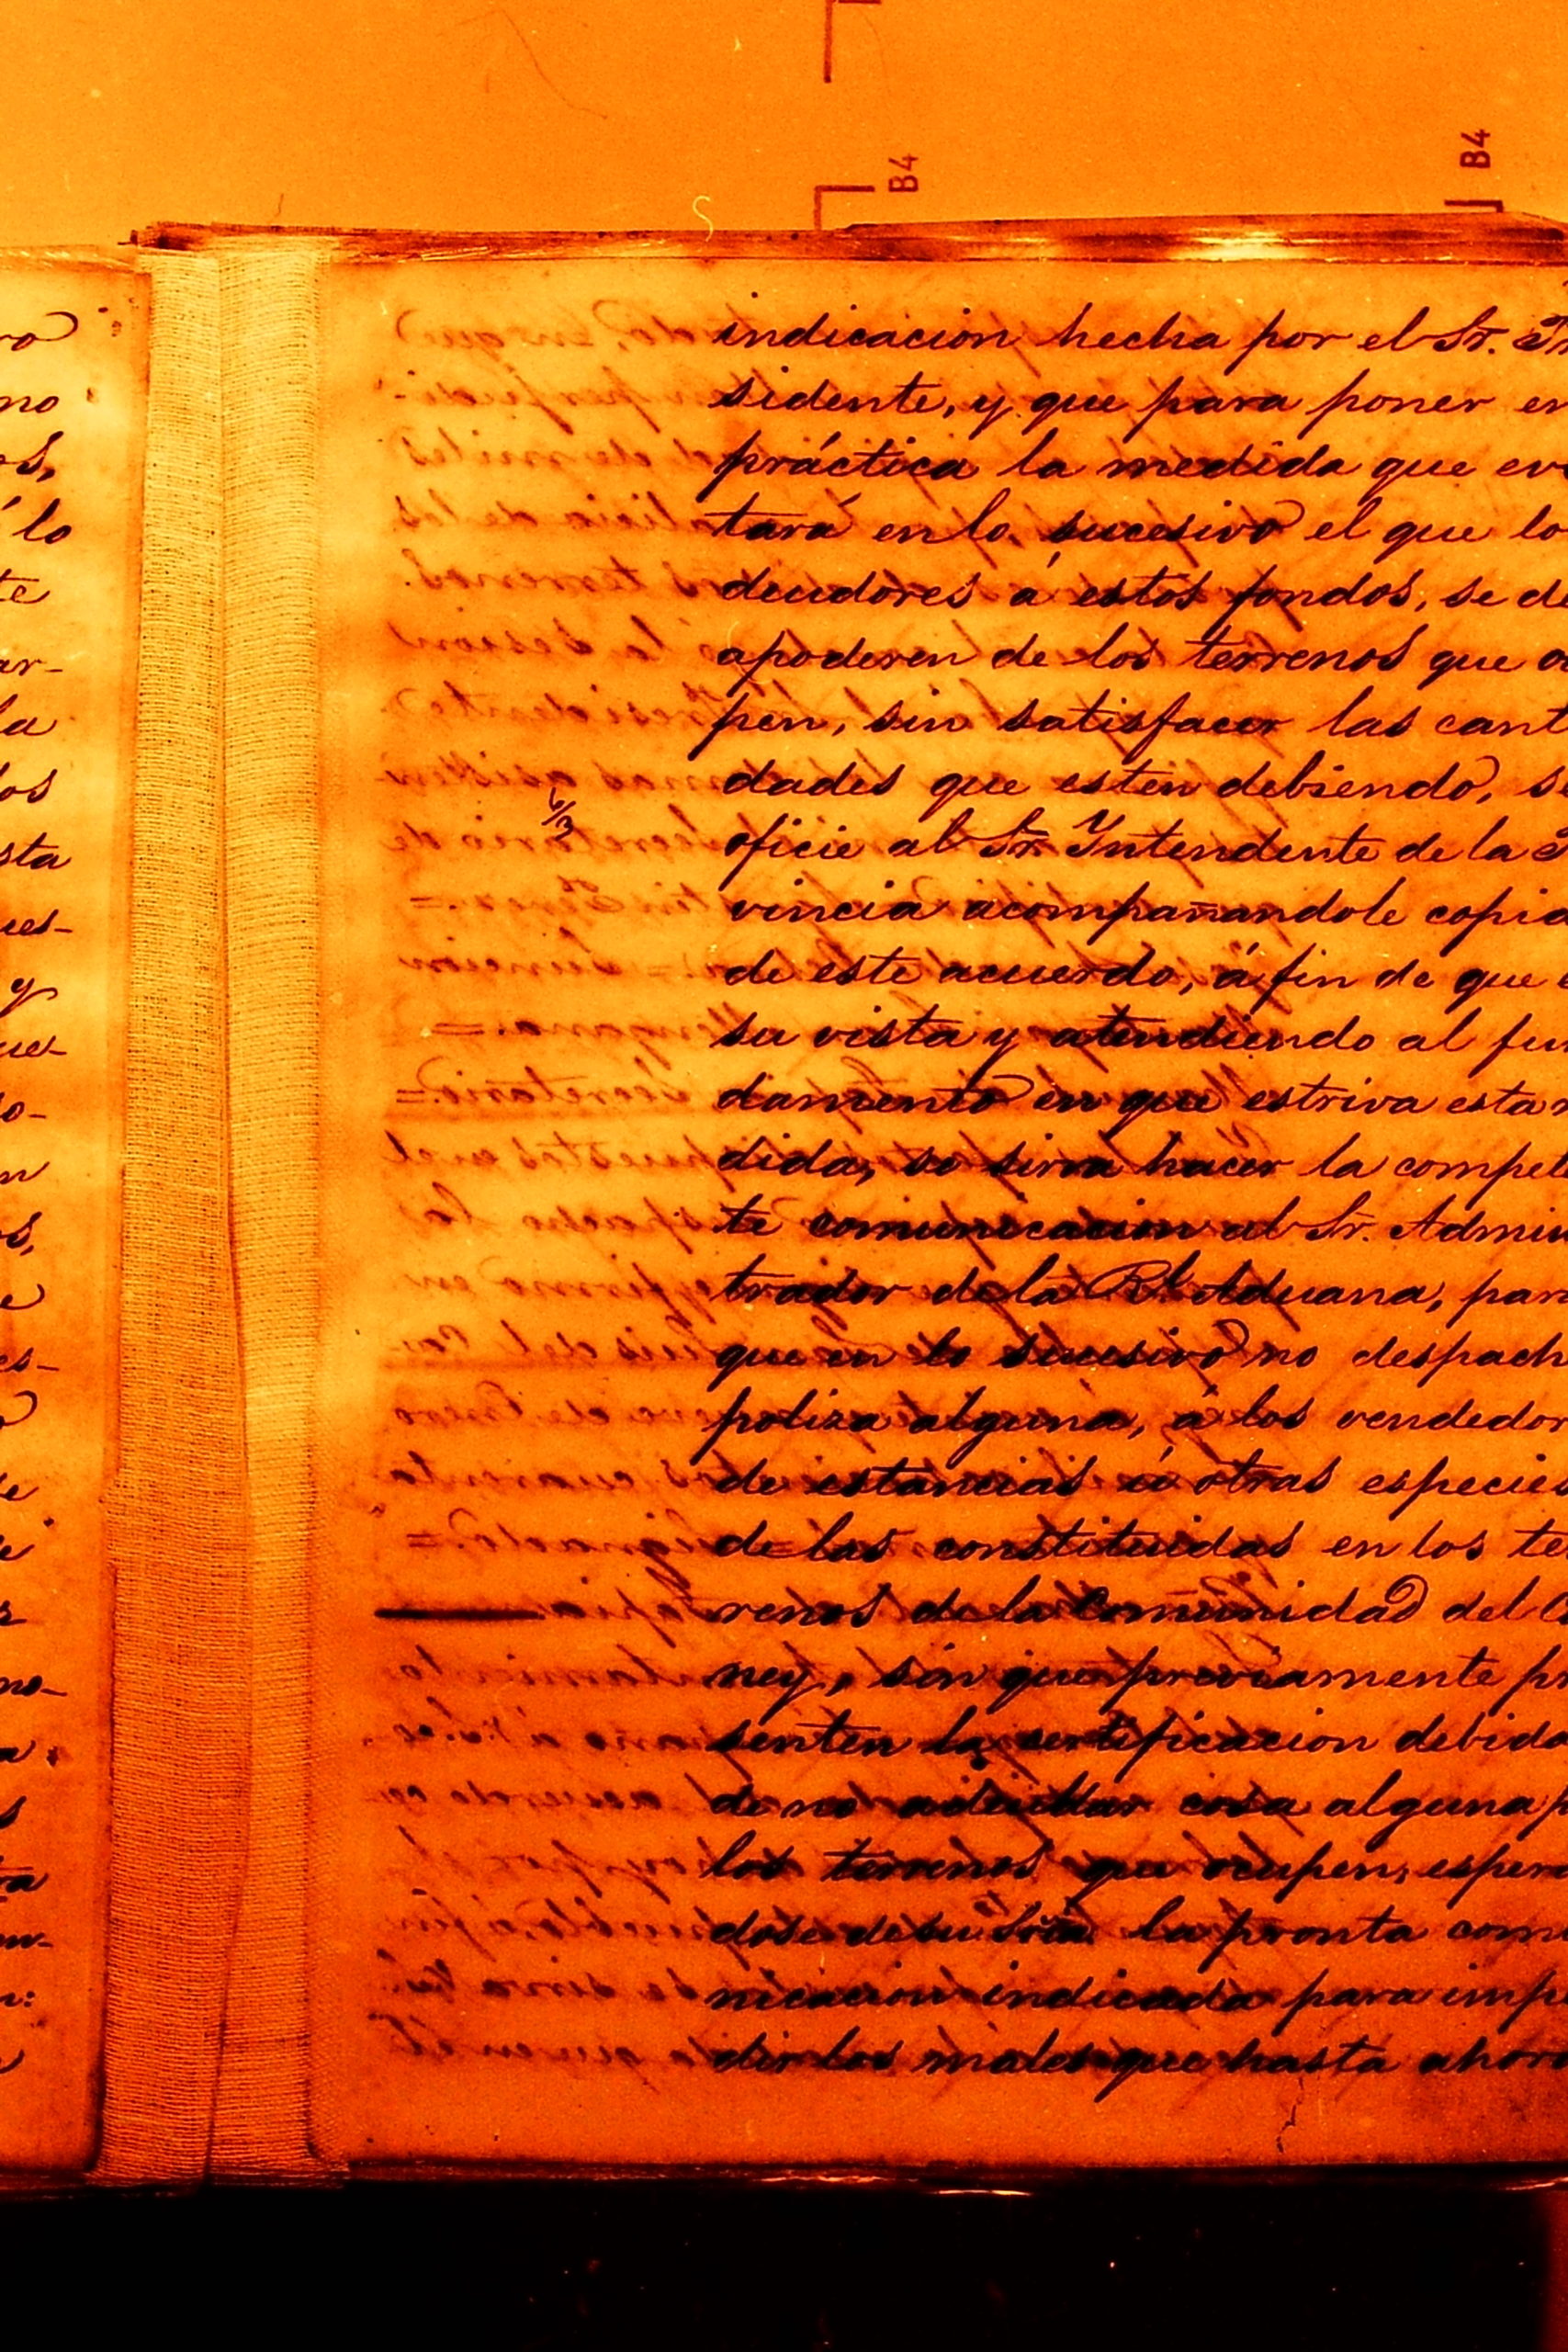 B4
B4
ro
no
os,
á lo
te
ar-
la
los
sta
ues-
y
ue-
so-
n
os,
e
es-
o
te
e
no-
a
s
ra
en-
n:
indicacion hecha por el Sr. Pre
sidente, y que para poner en
práctica la medida que evi
tará en lo sucesivo el que lo
deudores á estos fondos, se de
apoderen de los terrenos que o
pen, sin satisfacer las canti
dades que esten debiendo, se
6/3
oficie al Sr. Yntendente de la P
vincia acompañandole copia
de este acuerdo, á fin de que
su vista y atendiendo al fun
damento en que estriva esta m
dida, se sirva hacer la compet
te comunicacion al Sr. Admin
trador de la Rl. Aduana, para
que en lo sucesivo no despach
poliza alguna, á los vendedor
de estancias ú otras especies
de las constituidas en los te
renos de la Comunidad del C
ney, sin que previamente pr
senten la certificacion debida
de no adeudar cosa alguna p
los terrenos que ocupen, esper
dose de su Sría. la pronta com
nicacion indicada para imp
dir los males que hasta ahora